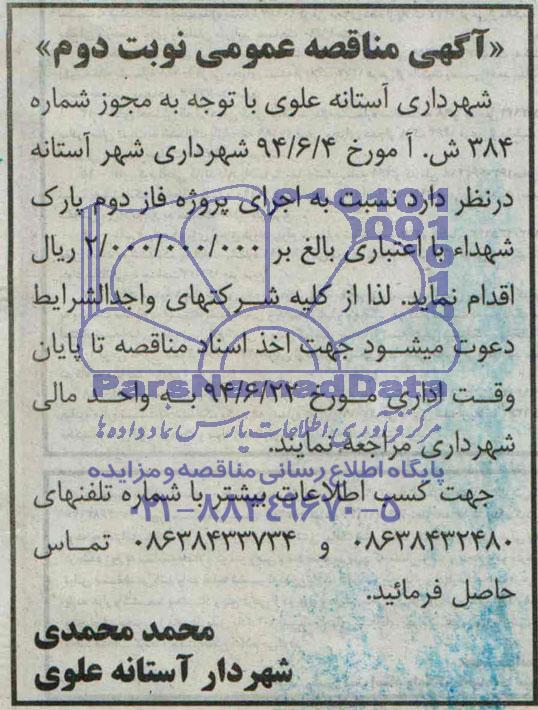 «آگهی مناقصه عمومی نوبت دوم»
شهرداری آستانه علوی با توجه به مجوز شماره
۳۸۴ ش. آ مورخ ۹۴/۶/۴ شهرداری شهر آستانه
درنظر دارد نسبت به اجرای پروژه فاز دوم پارک
شهداء با اعتباری بالغ بر ۲/۰۰۰/۰۰۰/۰۰۰ ریال
اقدام نماید. لذا از کلیه شرکتهای واجدالشرایط
دعوت میشود جهت اخذ اسناد مناقصه تا پایان
ParsNamadData
وقت اداری مورخ ۹۴/۶/۲۲ به واحد مالی
مرکز فرآوری اطلاعات پارس نماد داده ها
شهرداری مراجعه نمایند.
پایگاه اطلاع رسانی مناقصه و مزایده
جهت کسب اطلاعات بیشتر با شماره تلفنهای
۰۲۱-۸۸۳۴۹۶۷۰-۵
۰۸۶۳۸۴۳۲۴۸۰ و ۰۸۶۳۸۴۳۳۷۳۴ تماس
حاصل فرمائید.
محمد محمدی
شهردار آستانه علوی